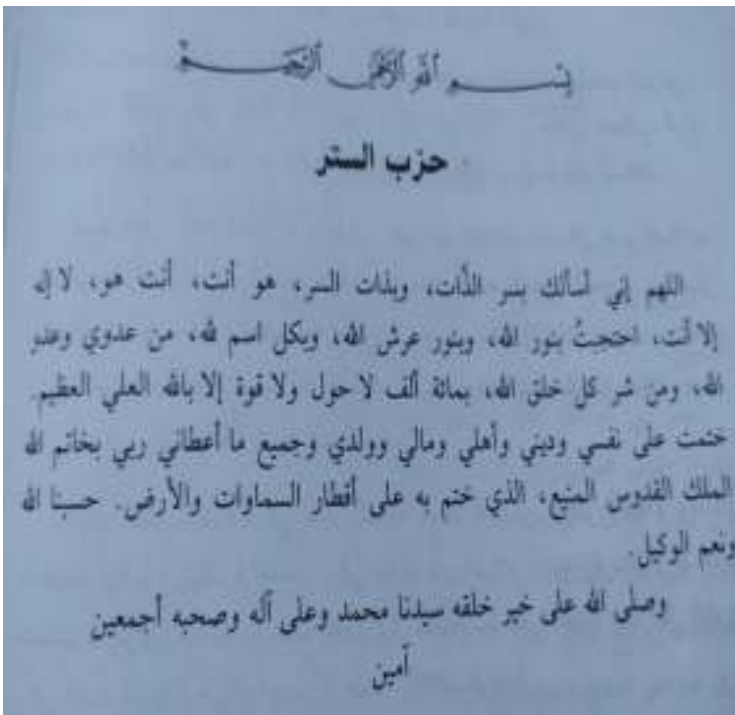 بسم الله الرحمن الرحيم
حزب الستر
اللهم إني أسألك بسر الذَّات، وبذات السر، هو أنت، أنت هو، لا إله
إلا أنت، احتجبتُ بنور الله، وبنور عرش الله، وبكل اسم لله، من عدوي وعدو
الله، ومن شر كل خلق الله، بمائة ألف لا حول ولا قوة إلا بالله العلي العظيم.
ختمت على نفسي وديني وأهلي ومالي وولدي وجميع ما أعطاني ربي بخاتم الله
الملك القدوس المنيع، الذي ختم به على أقطار السماوات والأرض. حسبنا الله
ونعم الوكيل.
وصلى الله على خير خلقه سيدنا محمد وعلى آله وصحبه أجمعين
آمين